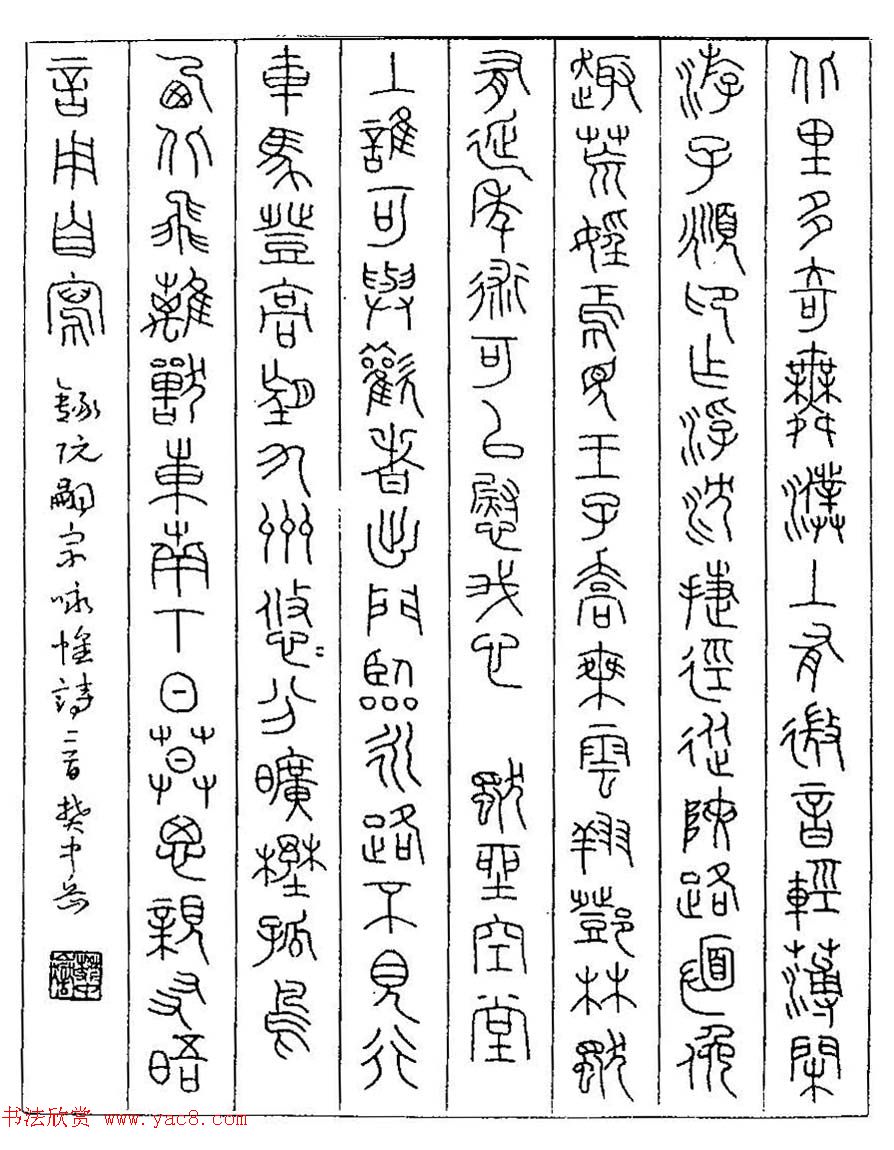 北里多奇舞濮上有微音輕薄閑
游子頫卬乍浮沈捷徑從陜路僶俛
趣荒婬焉見王子喬乘雲翔鄧林獨
有延年術可以慰我心 獨坐空堂
上誰可與歡者出門臨永路不見行
車馬登高望九州悠〻分曠野孤鳥
西北飛離獸東南下日暮思親友晤
言用自寫 錄阮嗣宗咏懷詩二首 樊中岳
书法欣赏 www.yac8.com